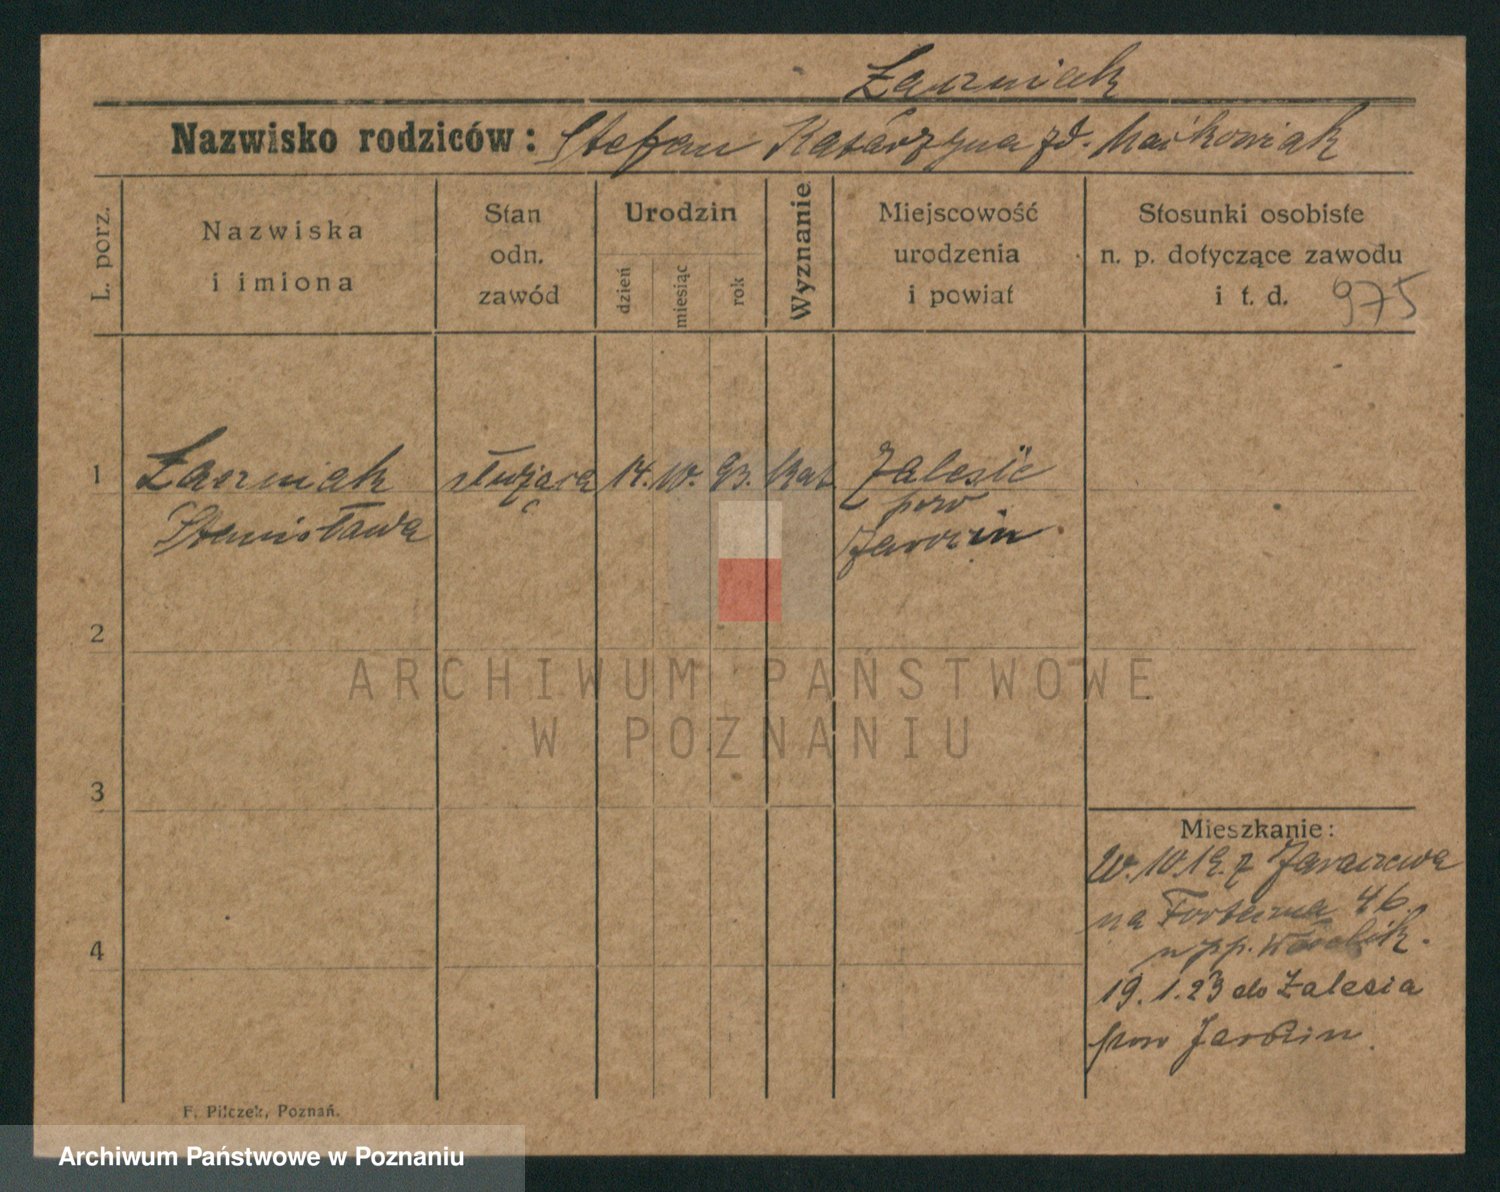 Łaczniak
Nazwisko rodziców: Stefan Katarzyna zd. Maćkowiak
L. porz.
Nazwiska
i imiona
Stan
odn.
zawód
Urodzin
dzień
miesiąc
rok
Wyznanie
Miejscowość
urodzenia
i powiat
Stosunki osobiste
n. p. dotyczące zawodu
i t. d. 975
1 Łaczniak służąca 14. 10. 93. Kat Zalesie
Stanisława pow
Jarocin
2
3
4
Mieszkanie:
10.19. z Jaraczewa
na 46
19.1.23 do Zalesia
pow Jarocin.
F. Pilczek, Poznań.
ARCHIWUM PAŃSTWOWE
W POZNANIU
Archiwum Państwowe w Poznaniu